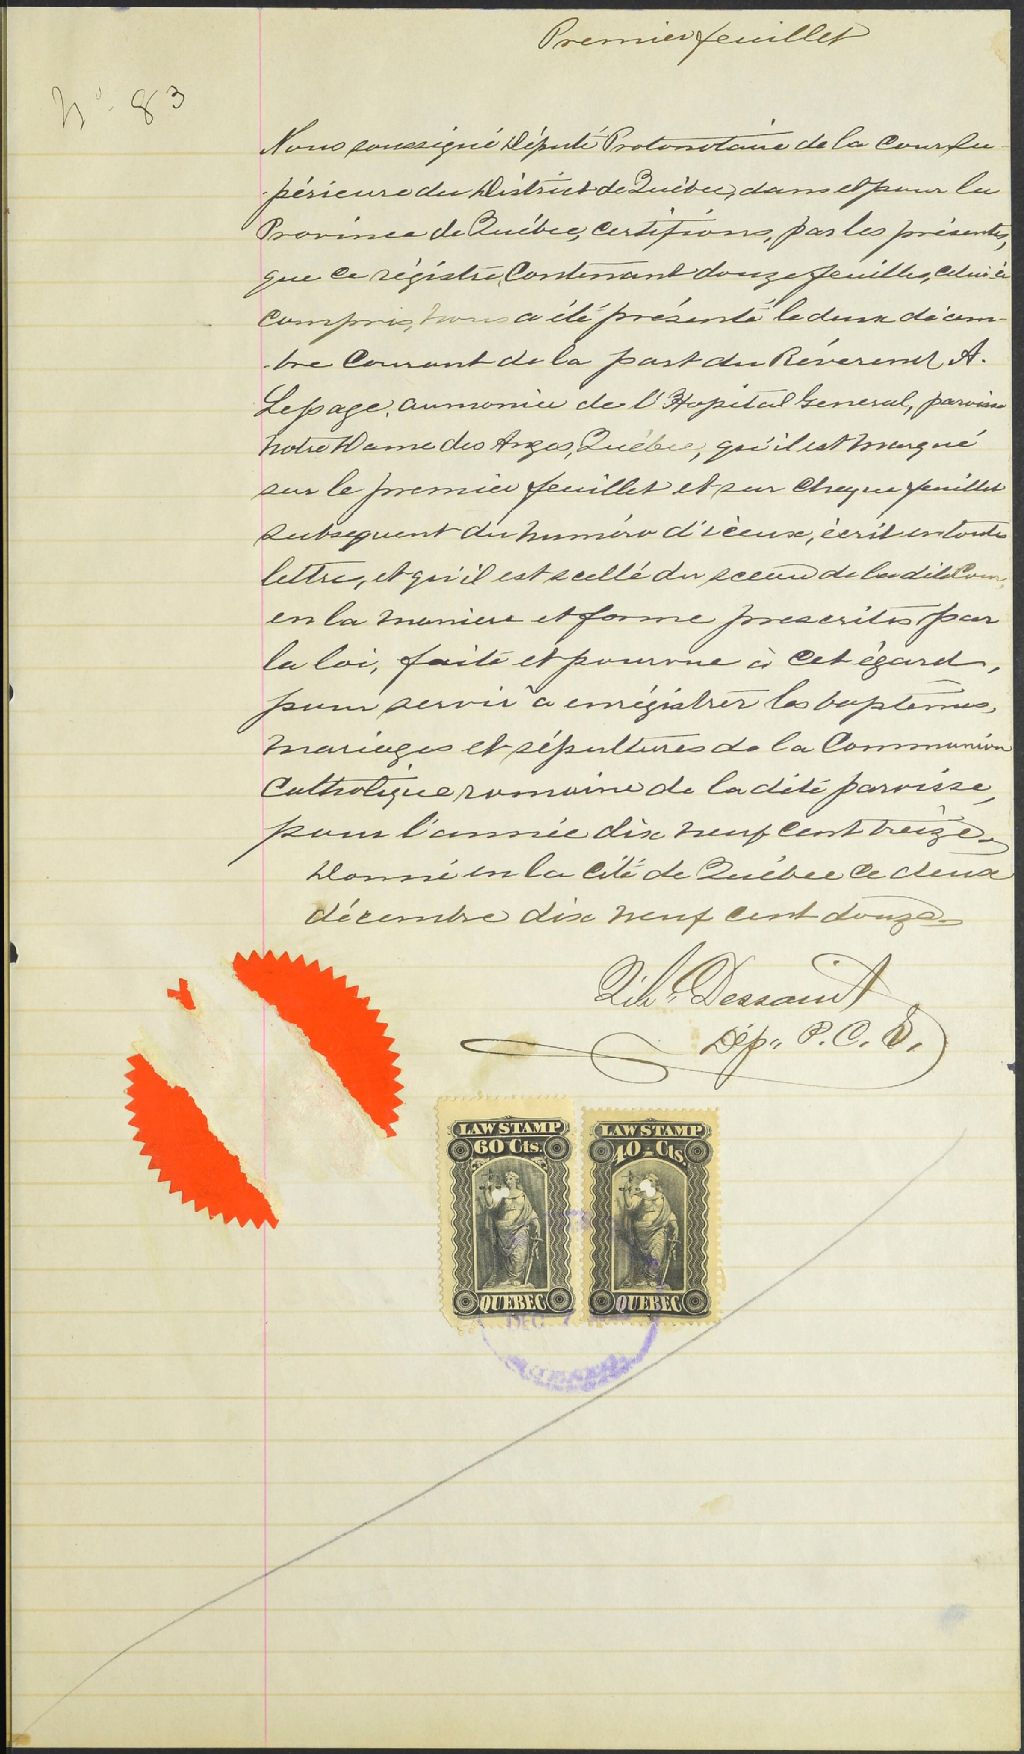 Premier feuillet
No 83
Nous soussigné Député Protonotaire de la Cour Su-
périeure du District de Québec, dans et pour la
Province de Québec, certifions, par les présentes,
que ce régistre, Contenant douze feuilles, celui ci
compris, nous a été présenté le deux décem-
-bre Courant de la part du Révérend A.
Lepage, aumonier de l'Hopital General, paroisse
Notre Dame des Anges, Québec, qu'il est marqué
sur le premier feuillet et sur chaque feuillet
subsequent du numéro d'iceux, écrit en toutes
lettres, et qu'il est scellé du sceau de la dite Cour,
en la maniere et forme prescrites par
la loi, faite et pourvue à cet égard,
pour servir à enrégistrer les baptêmes,
mariages et sépultures de la Communion
Catholique romaine de la dite paroisse,
pour l'année dix neuf cent treize.
Donné en la Cité de Québec ce deux
décembre dix neuf cent douze.
Dessaint
Dép. P. C. S.
LAW STAMP LAW STAMP
60 Cts. 40 Cts.
QUEBEC QUEBEC
DEC
QUEBEC